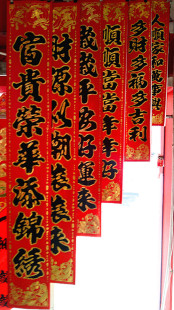 人順家和萬事興
多財多福多吉利
順順當當年年好
歲歲平安好運來
財源似潮滾滾來
富貴榮華添錦綉